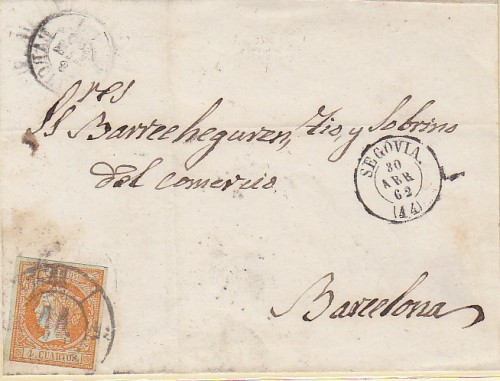 Sres
Ss Barrecheguren, Tio, y Sobrino
del comercio
SEGOVIA
30
ABR
62
(44)
Barcelona
44
4 CUARTOS